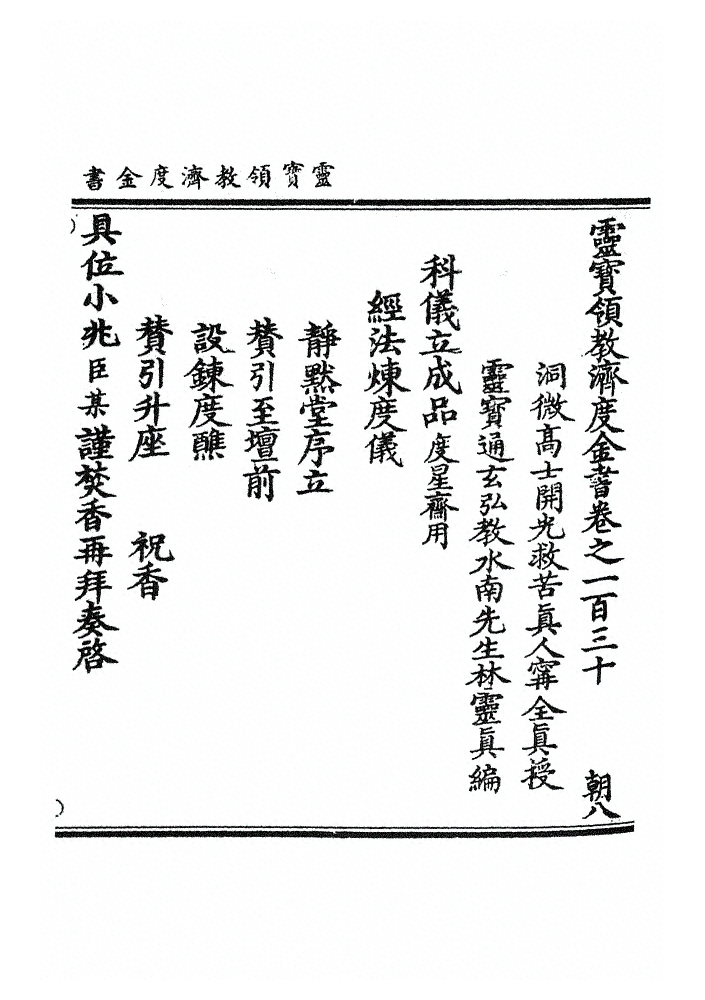 靈寶領教濟度金書
靈寶領教濟度金書卷之一百三十 朝八
洞微高士開光救苦眞人寗全眞授
靈寶通玄弘教水南先生林靈眞編
科儀立成品度星齋用
經法煉度儀
靜默堂序立
贊引至壇前
設鍊度醮
贊引升座 祝香
具位小兆臣某謹焚香再拜奏啓